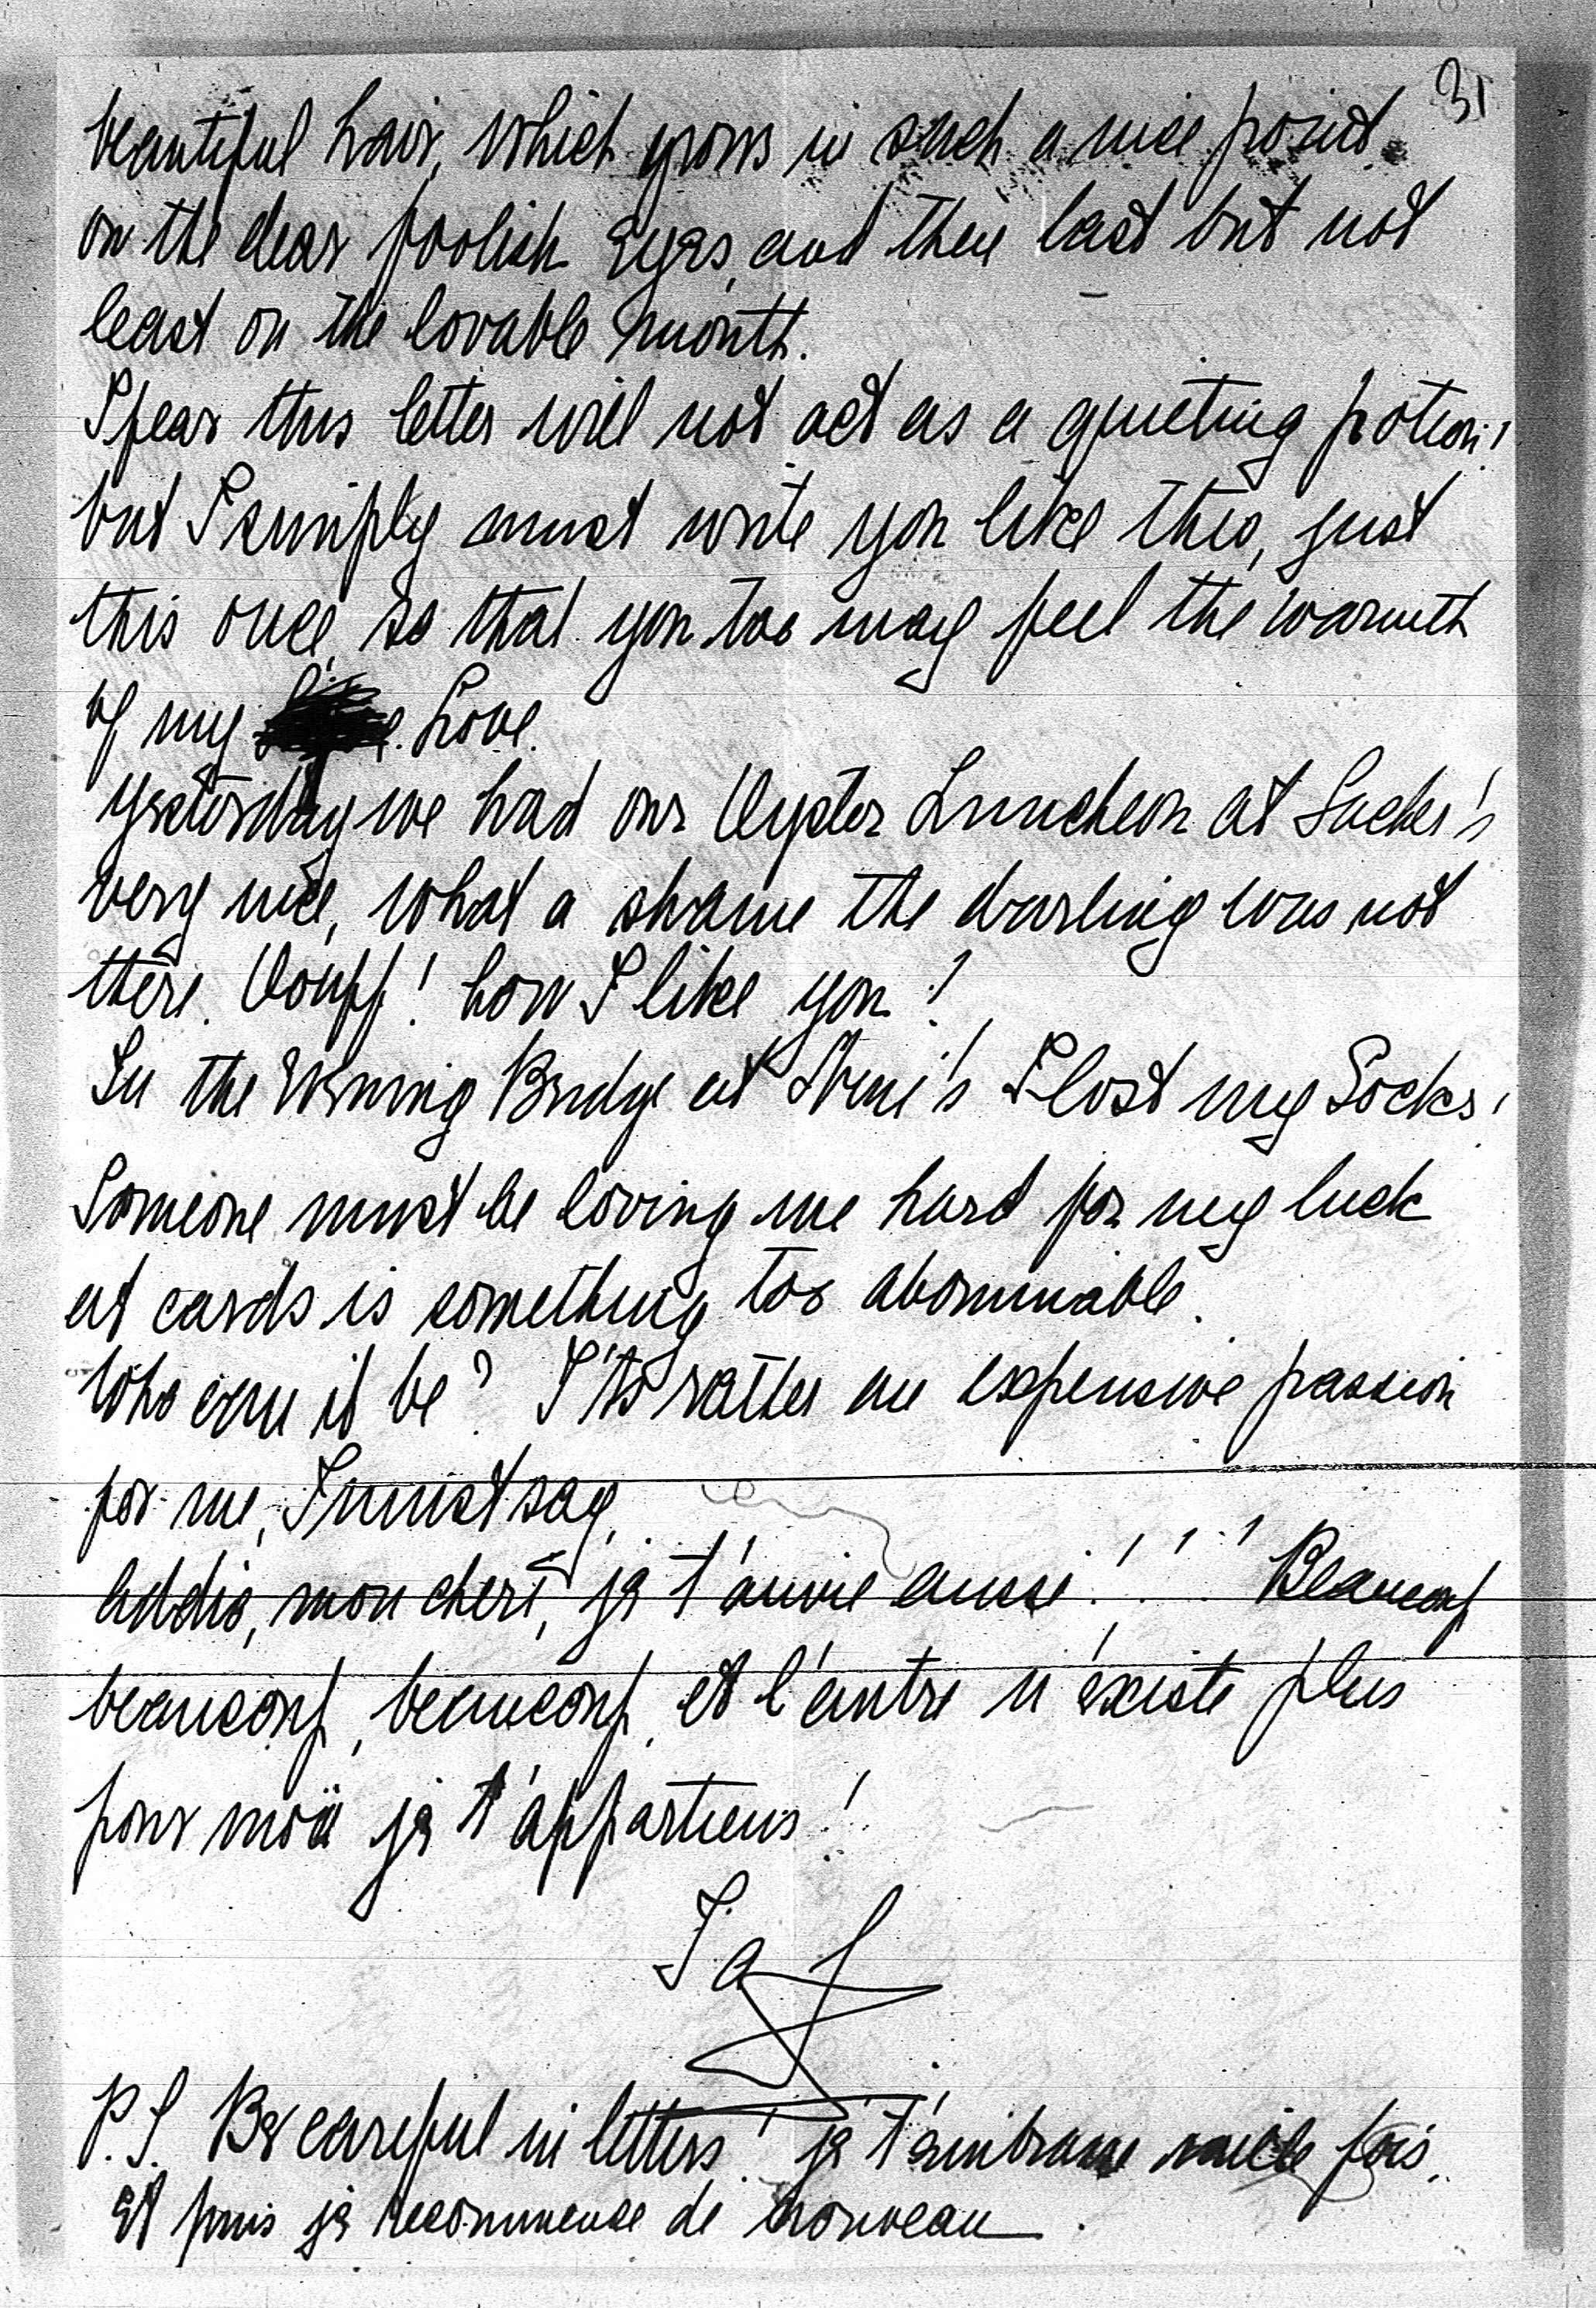 31
beautiful hair, which grows in such a nice point
on the dear foolish Eyes, and then last but not
least on the lovable mouth.
I fear this letter will not act as a quieting potion!
but I simply must write you like this, just
this once, so that you too may feel the warmth
of my Love.
Yesterday we had our Oyster Luncheon at Sacher's
very nice, what a shame the darling was not
there. Oouff! how I like you!
In the Evening Bridge at I lost my Socks!
Someone must be loving me hard for my luck
at cards is something too abominable.
Who can it be? It's rather an expensive passion
for me, I must say.
Addio, mon cheri, je t'aime aussi!!! Beaucoup
beaucoup, beaucoup, et l'autre n'existe plus
pour moi je t'appartiens!
P.S. Be careful in letters! je t'embrasse mille fois.
Et puis je recommence de nouveau.